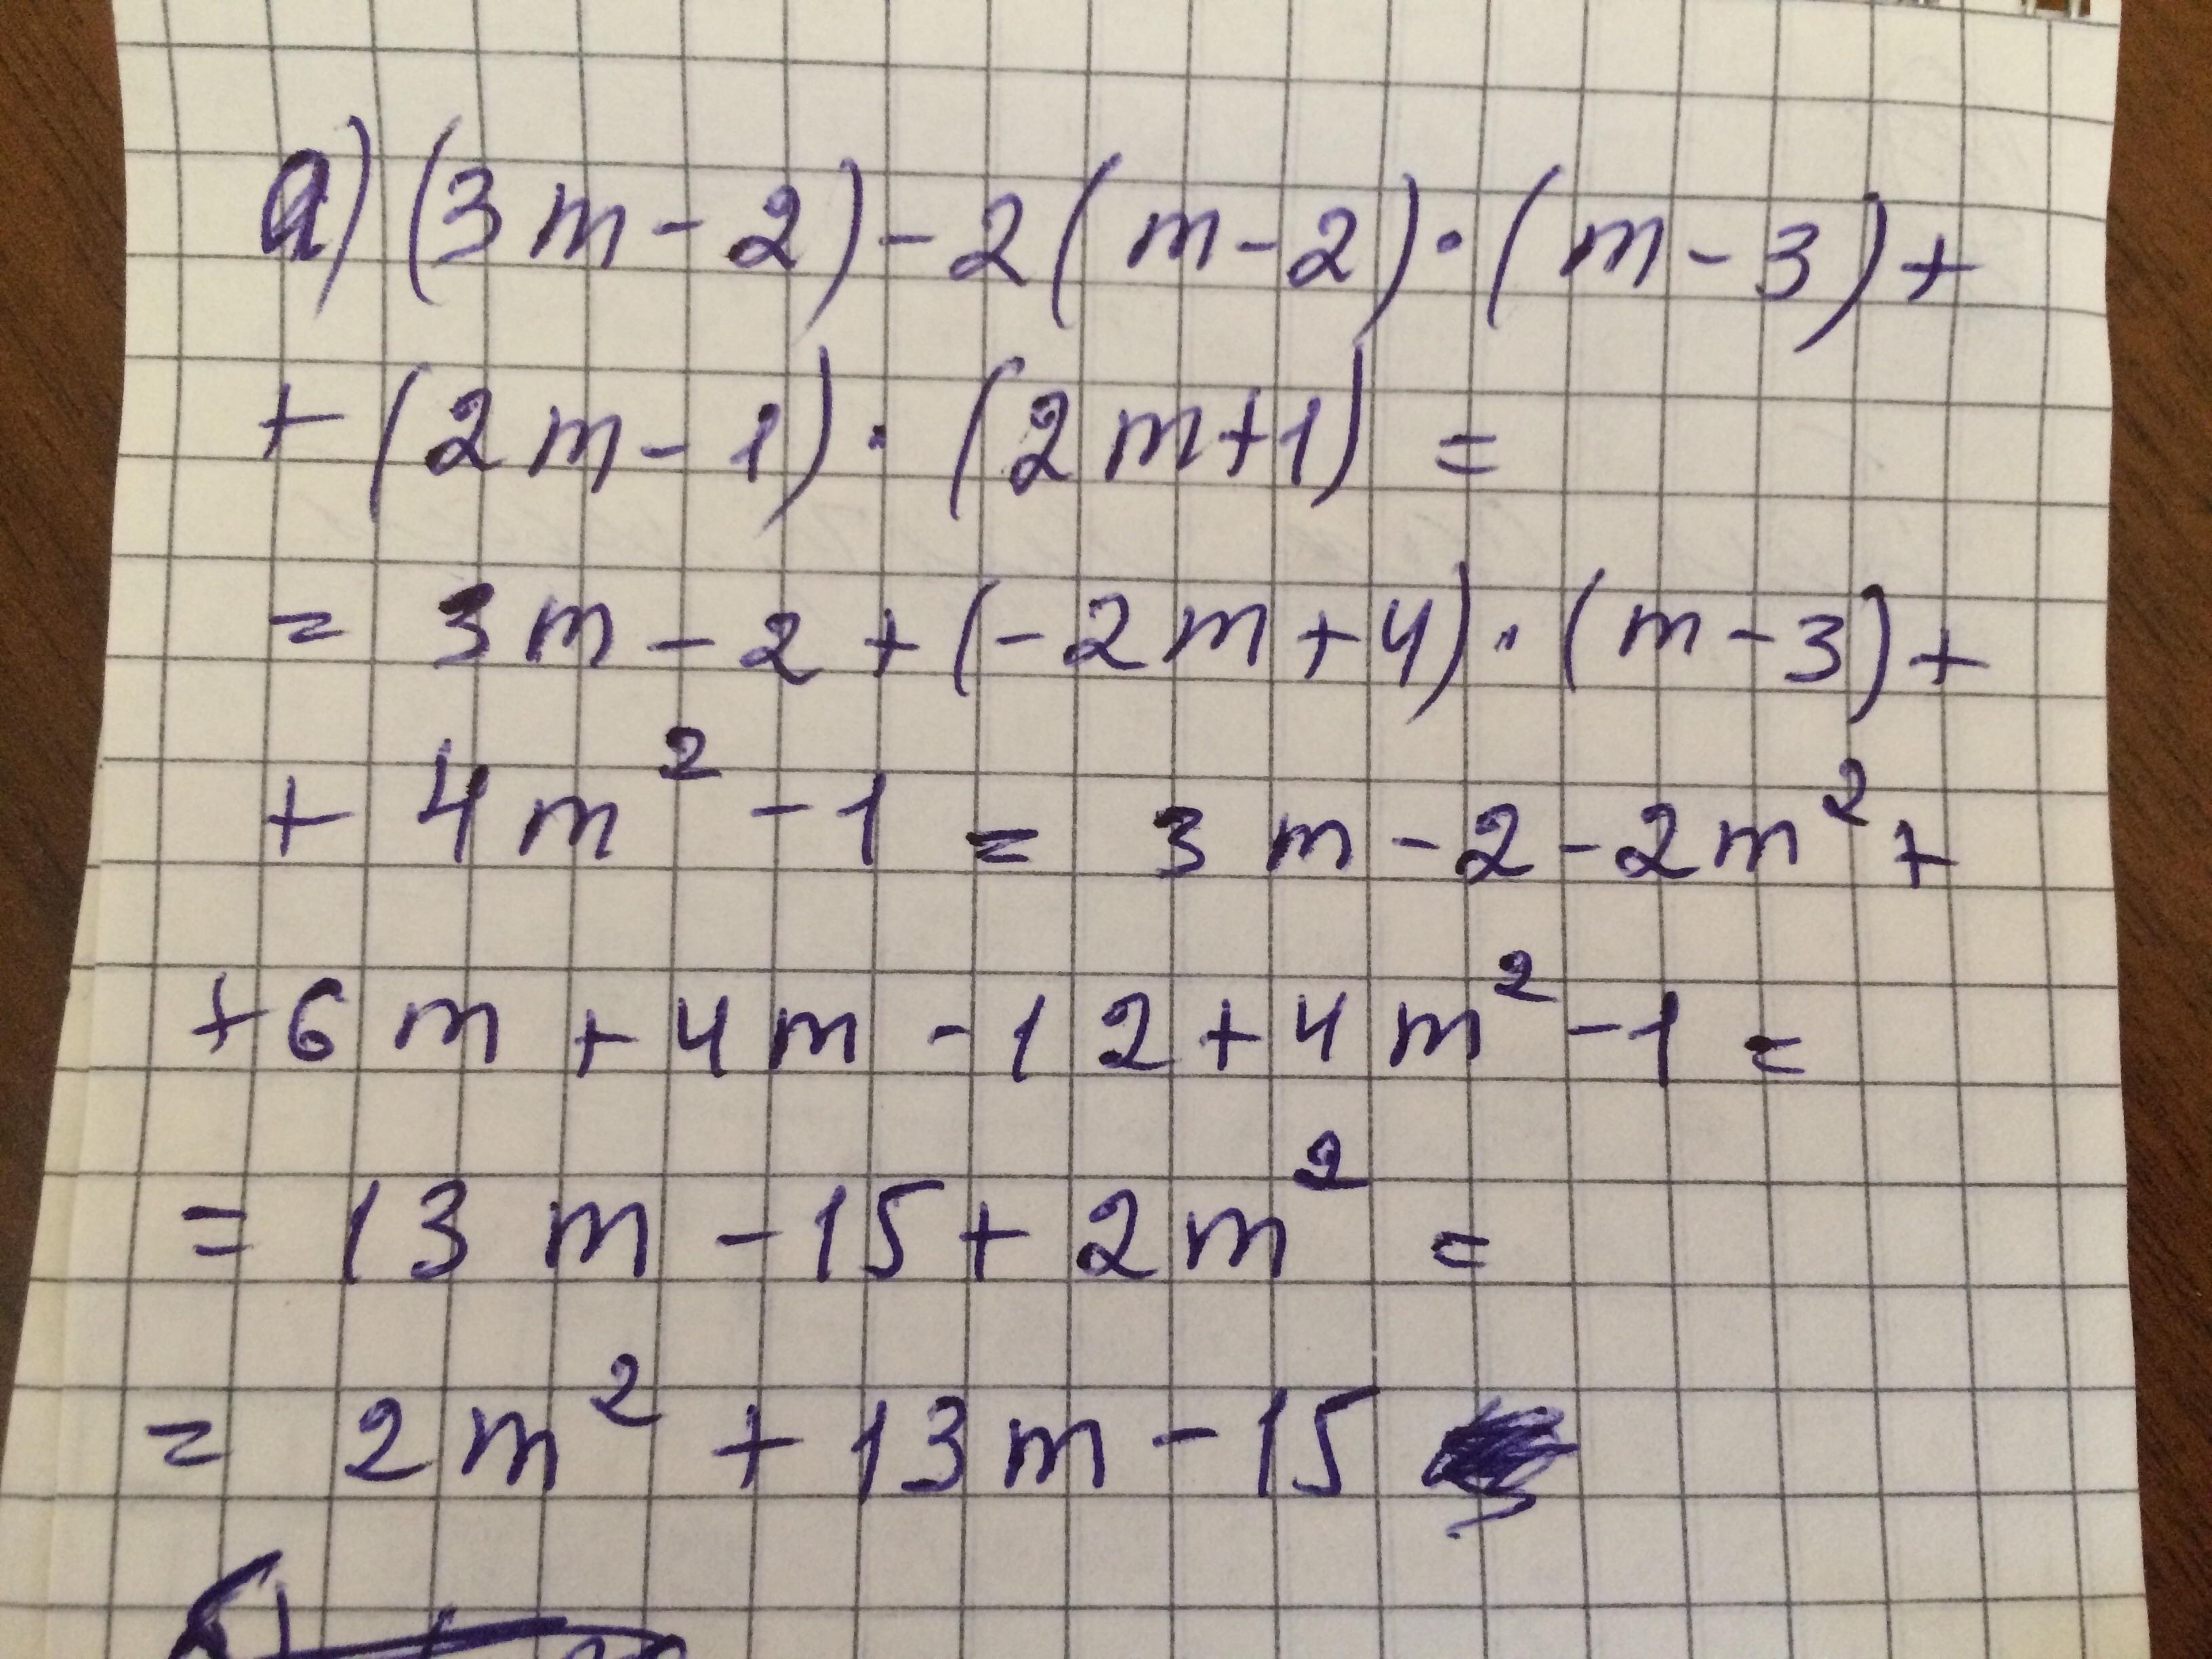 а) (3m-2)-2(m-2)·(m-3)+
+(2m-1)·(2m+1)=
= 3m-2+(-2m+4)·(m-3)+
+ 4m²-1 = 3m-2-2m²+
+6m+4m-12+4m²-1=
= 13m-15+2m² =
= 2m² + 13m-15